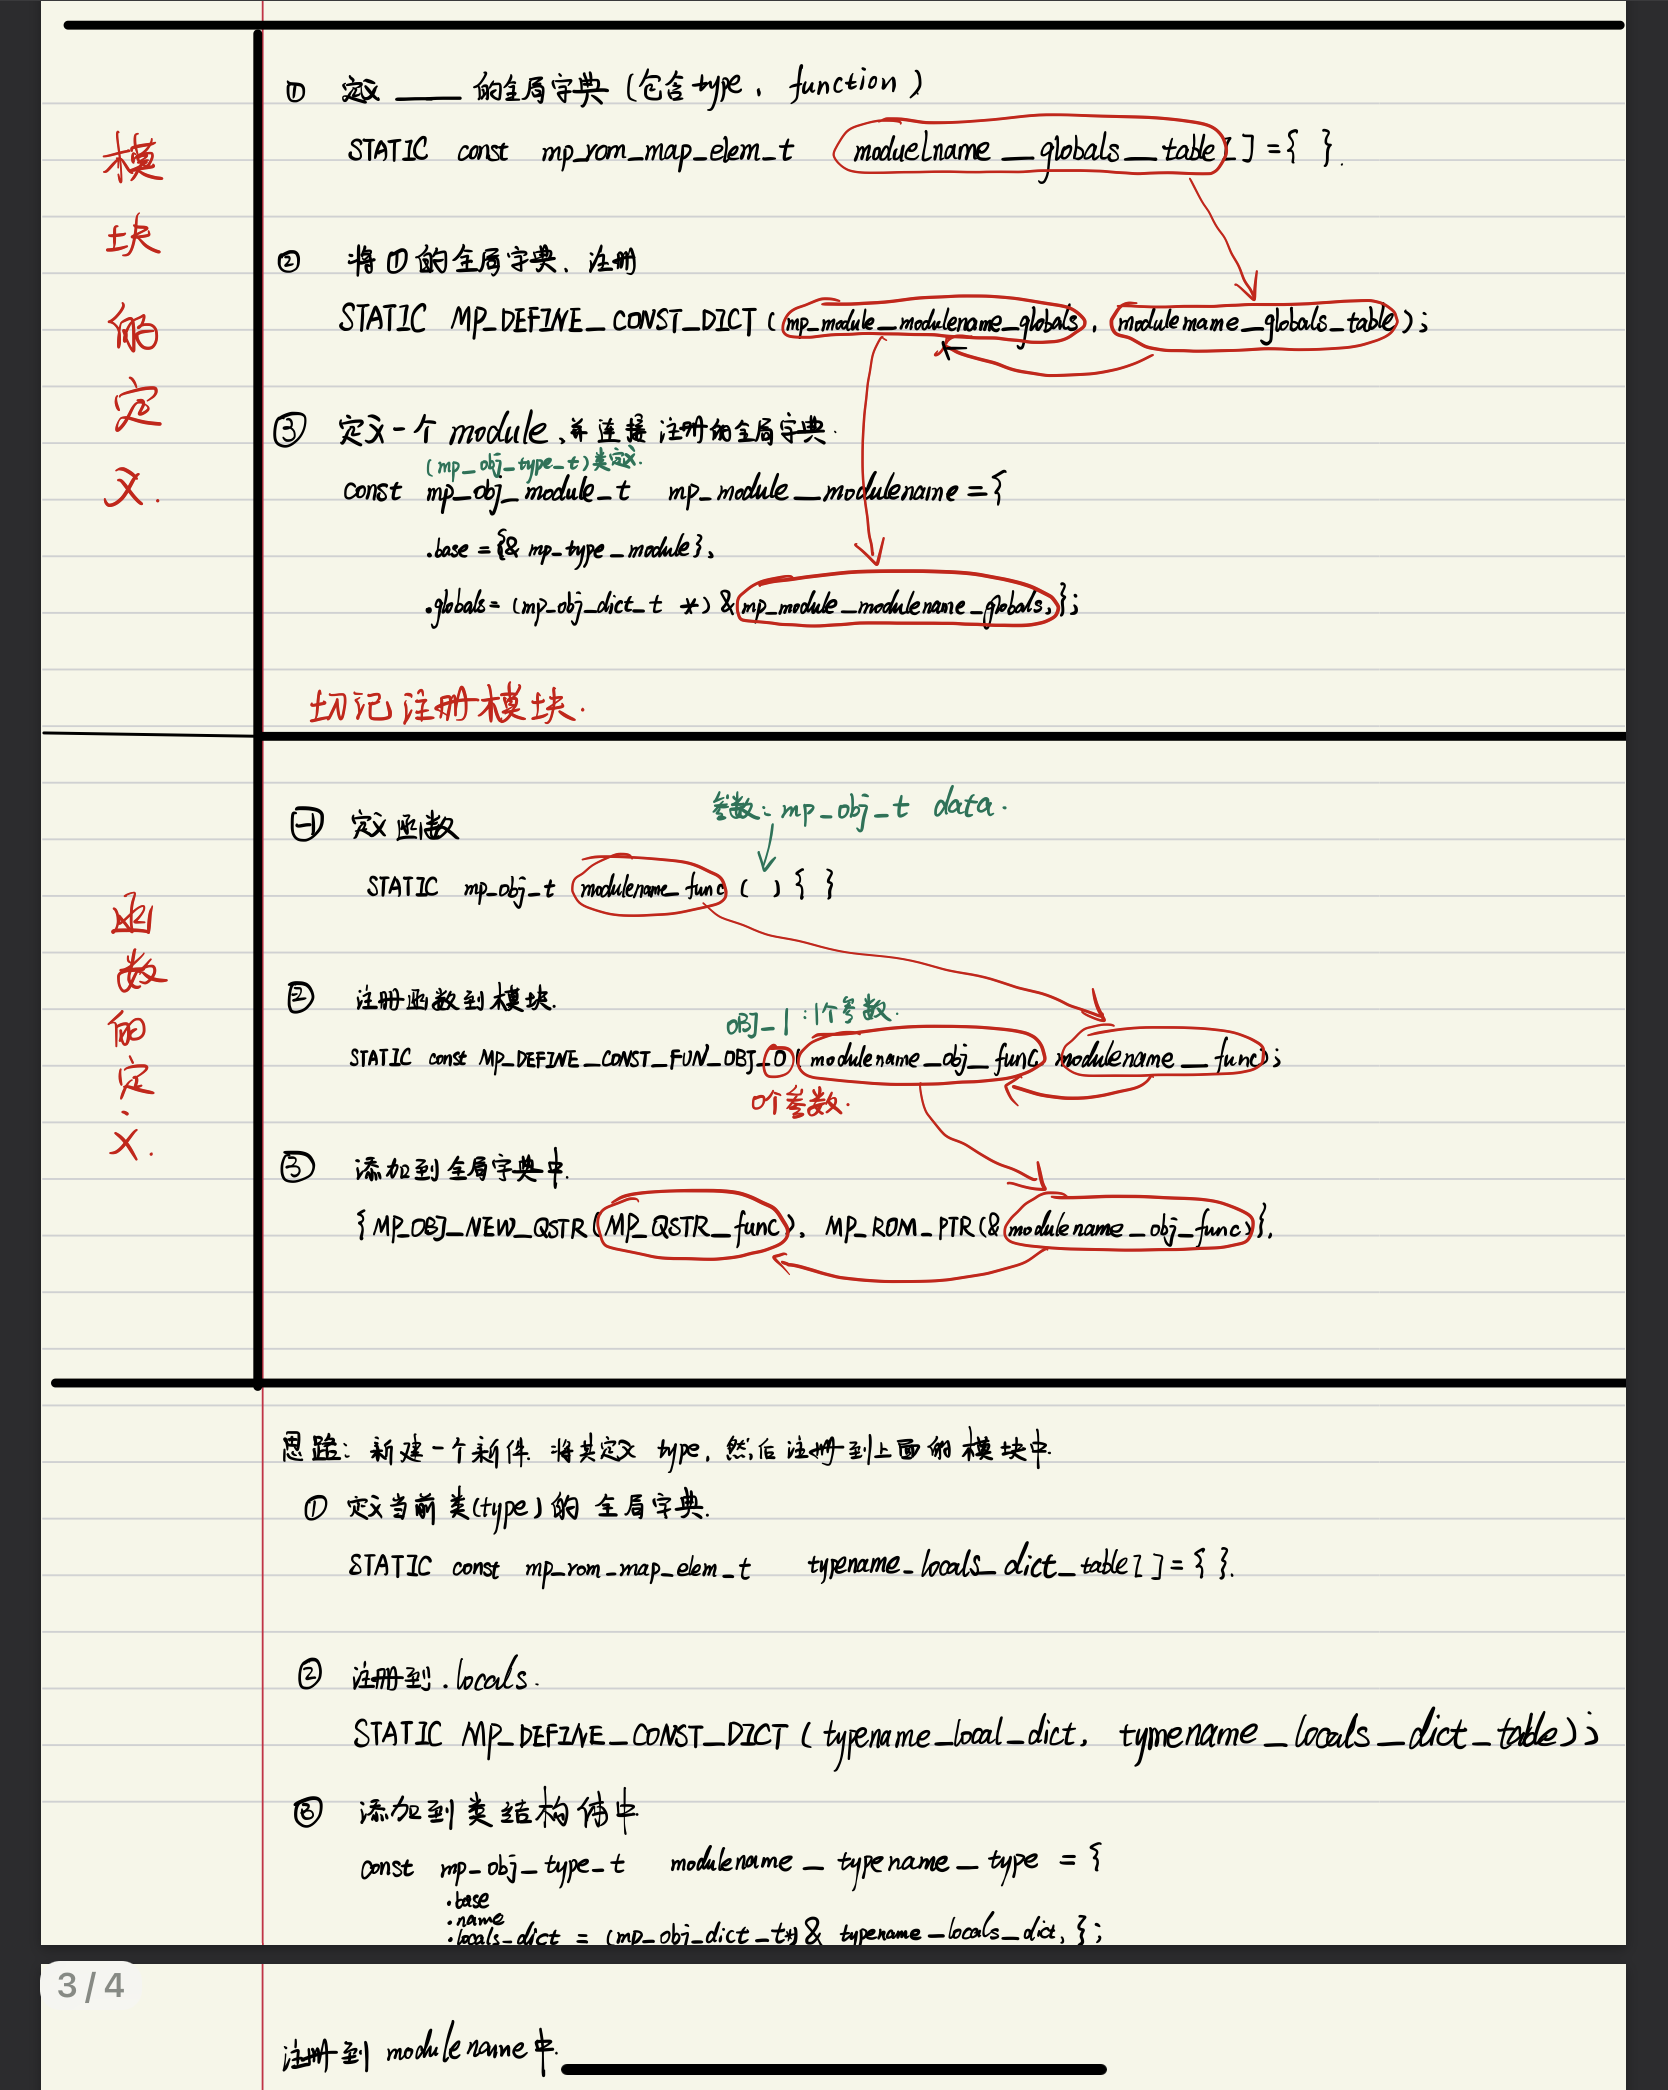 ① 定义 ____ 的全局字典 (包含type, function)
STATIC const mp_rom_map_elem_t moduelname__globals__table[]={ }.
② 将①的全局字典、注册
STATIC MP_DEFINE_CONST_DICT(mp_module_modulename_globals, modulename_globals_table);
③ 定义一个module、并连接注册的全局字典.
(mp_obj_type_t)类定义.
const mp_obj_module_t mp_module_modulename={
.base={& mp_type_module},
.globals=(mp_obj_dict_t *)&mp_module_modulename_globals,};
切记注册模块.
模块的定义.
㊀ 定义函数
参数:mp_obj_t data.
STATIC mp_obj_t modulename_func ( ){ }
② 注册函数到模块.
OBJ_1:1个参数.
STATIC const MP_DEFINE_CONST_FUN_OBJ_0(modulename_obj_func, modulename__func);
0个参数.
③ 添加到全局字典中.
{MP_OBJ_NEW_QSTR(MP_QSTR_func), MP_ROM_PTR(&modulename_obj_func)},
函数的定义.
思路: 新建一个新件. 将其定义 type, 然后注册到上面的模块中.
① 定义当前类(type)的 全局字典.
STATIC const mp_rom_map_elem_t typename_locals_dict_table[]={ }.
② 注册到.locals.
STATIC MP_DEFINE_CONST_DICT(typename_local_dict, tymename_locals_dict_table);
③ 添加到类结构体中.
const mp_obj_type_t modulename_typename_type = {
.base
.name
.locals_dict = (mp_obj_dict_t*)& typename_locals_dict,};
3/4
注册到 modulename中.